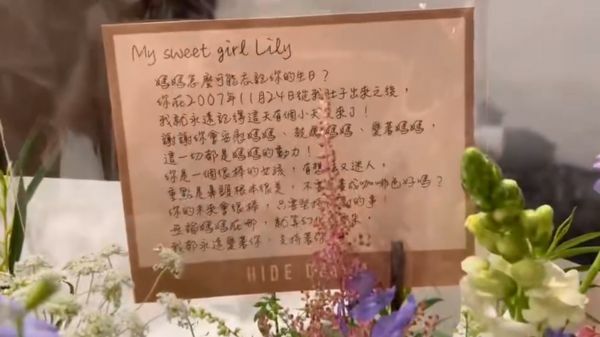 My sweet girl Lily
媽媽怎麼可能忘記你的生日？
你在2007年11月24日從我肚子出來之後，
我就永遠記得這天有個小天 來了！
謝謝你會安慰媽媽、 媽媽、愛著媽媽，
這一切都是媽媽的動力！
你是一個很棒的女孩，有想 又迷人，
重點是 頭 很 ，不 成咖啡色好嗎？
你的未來會很棒，只要 的事！
無論媽媽在哪， 來，
我都永遠愛著你、支持著你
HIDE D